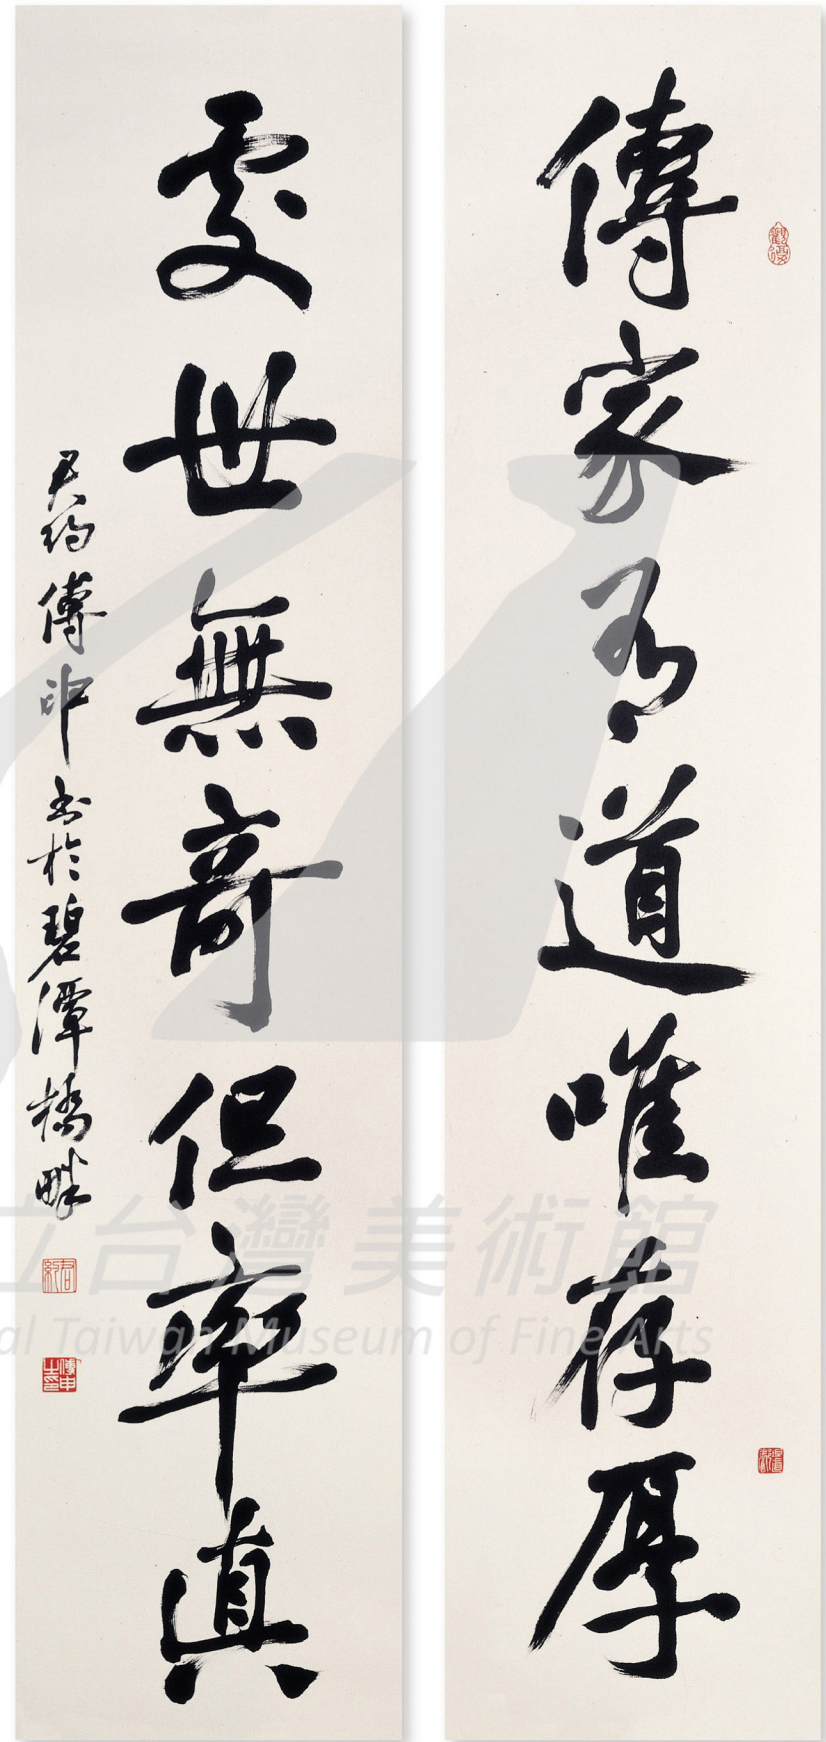 傳家有道唯存厚
處世無奇但率真
君約傅申書於碧潭橋畔
君約
傅申
立台灣美術館
al Taiwan Museum of Fine Arts